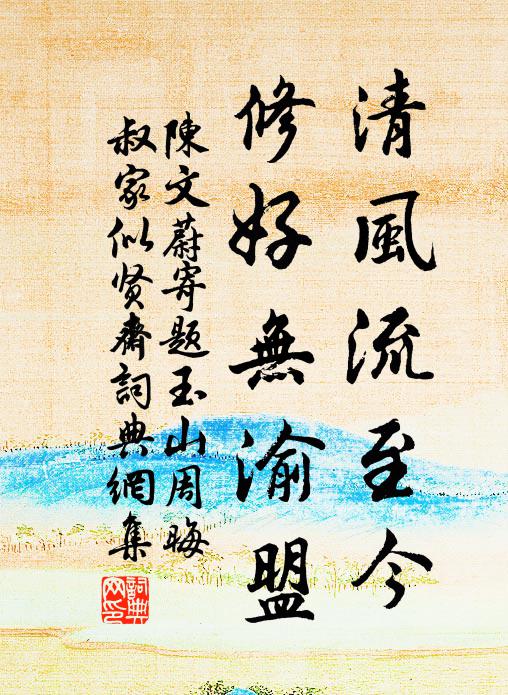 清風流至今
修好無渝盟
陳文蔚寄題玉山周晦
叔家似贤齋詞典網集
詞典